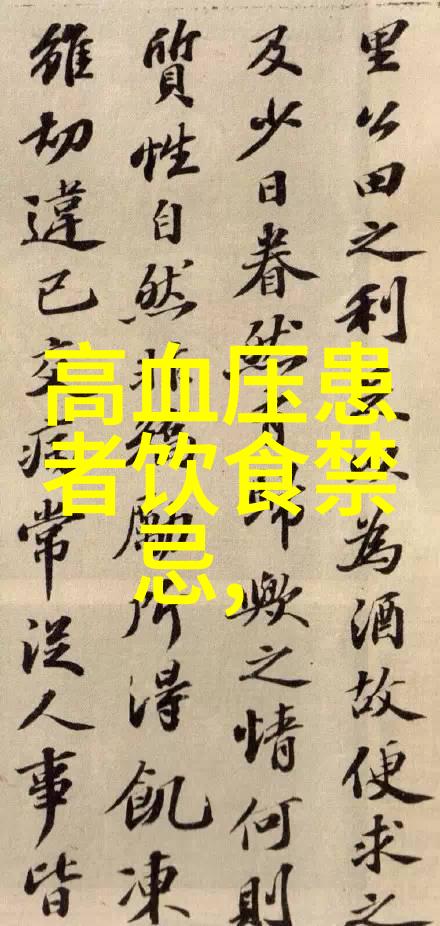 高血压患
者饮食禁
忌,
里公田之利為酒故便求之
及少日眷然有歸歟之情何則
質性自然非矯勵所得飢凍
雖切違己交病常從人事皆